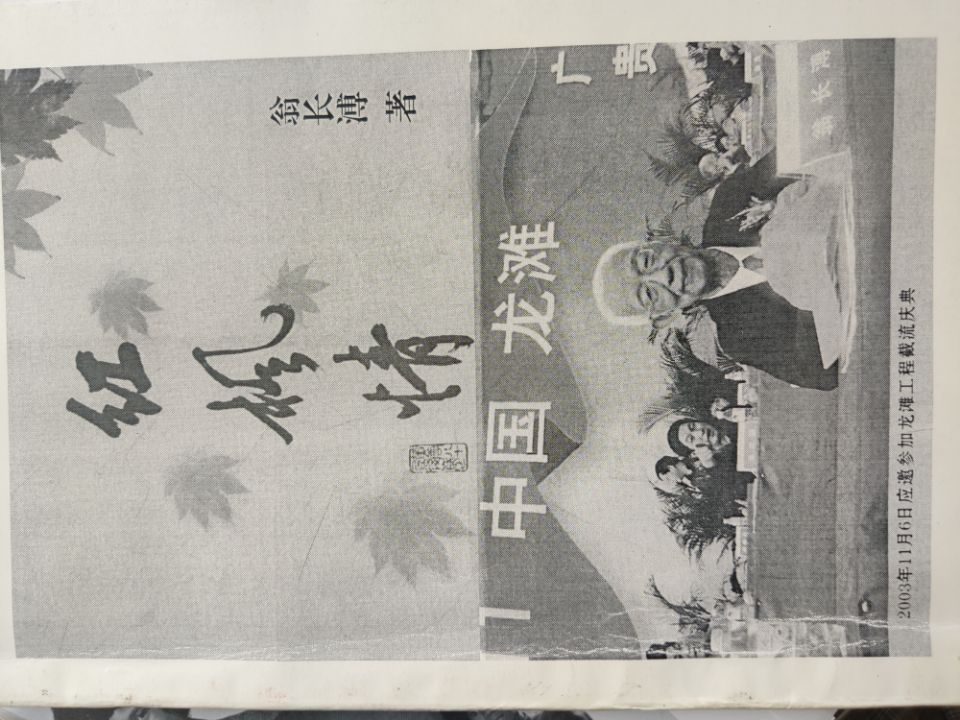 红枫情
翁长溥 著
中国 龙滩 广
贵
翁长溥
2003年11月6日应邀参加龙滩工程截流庆典